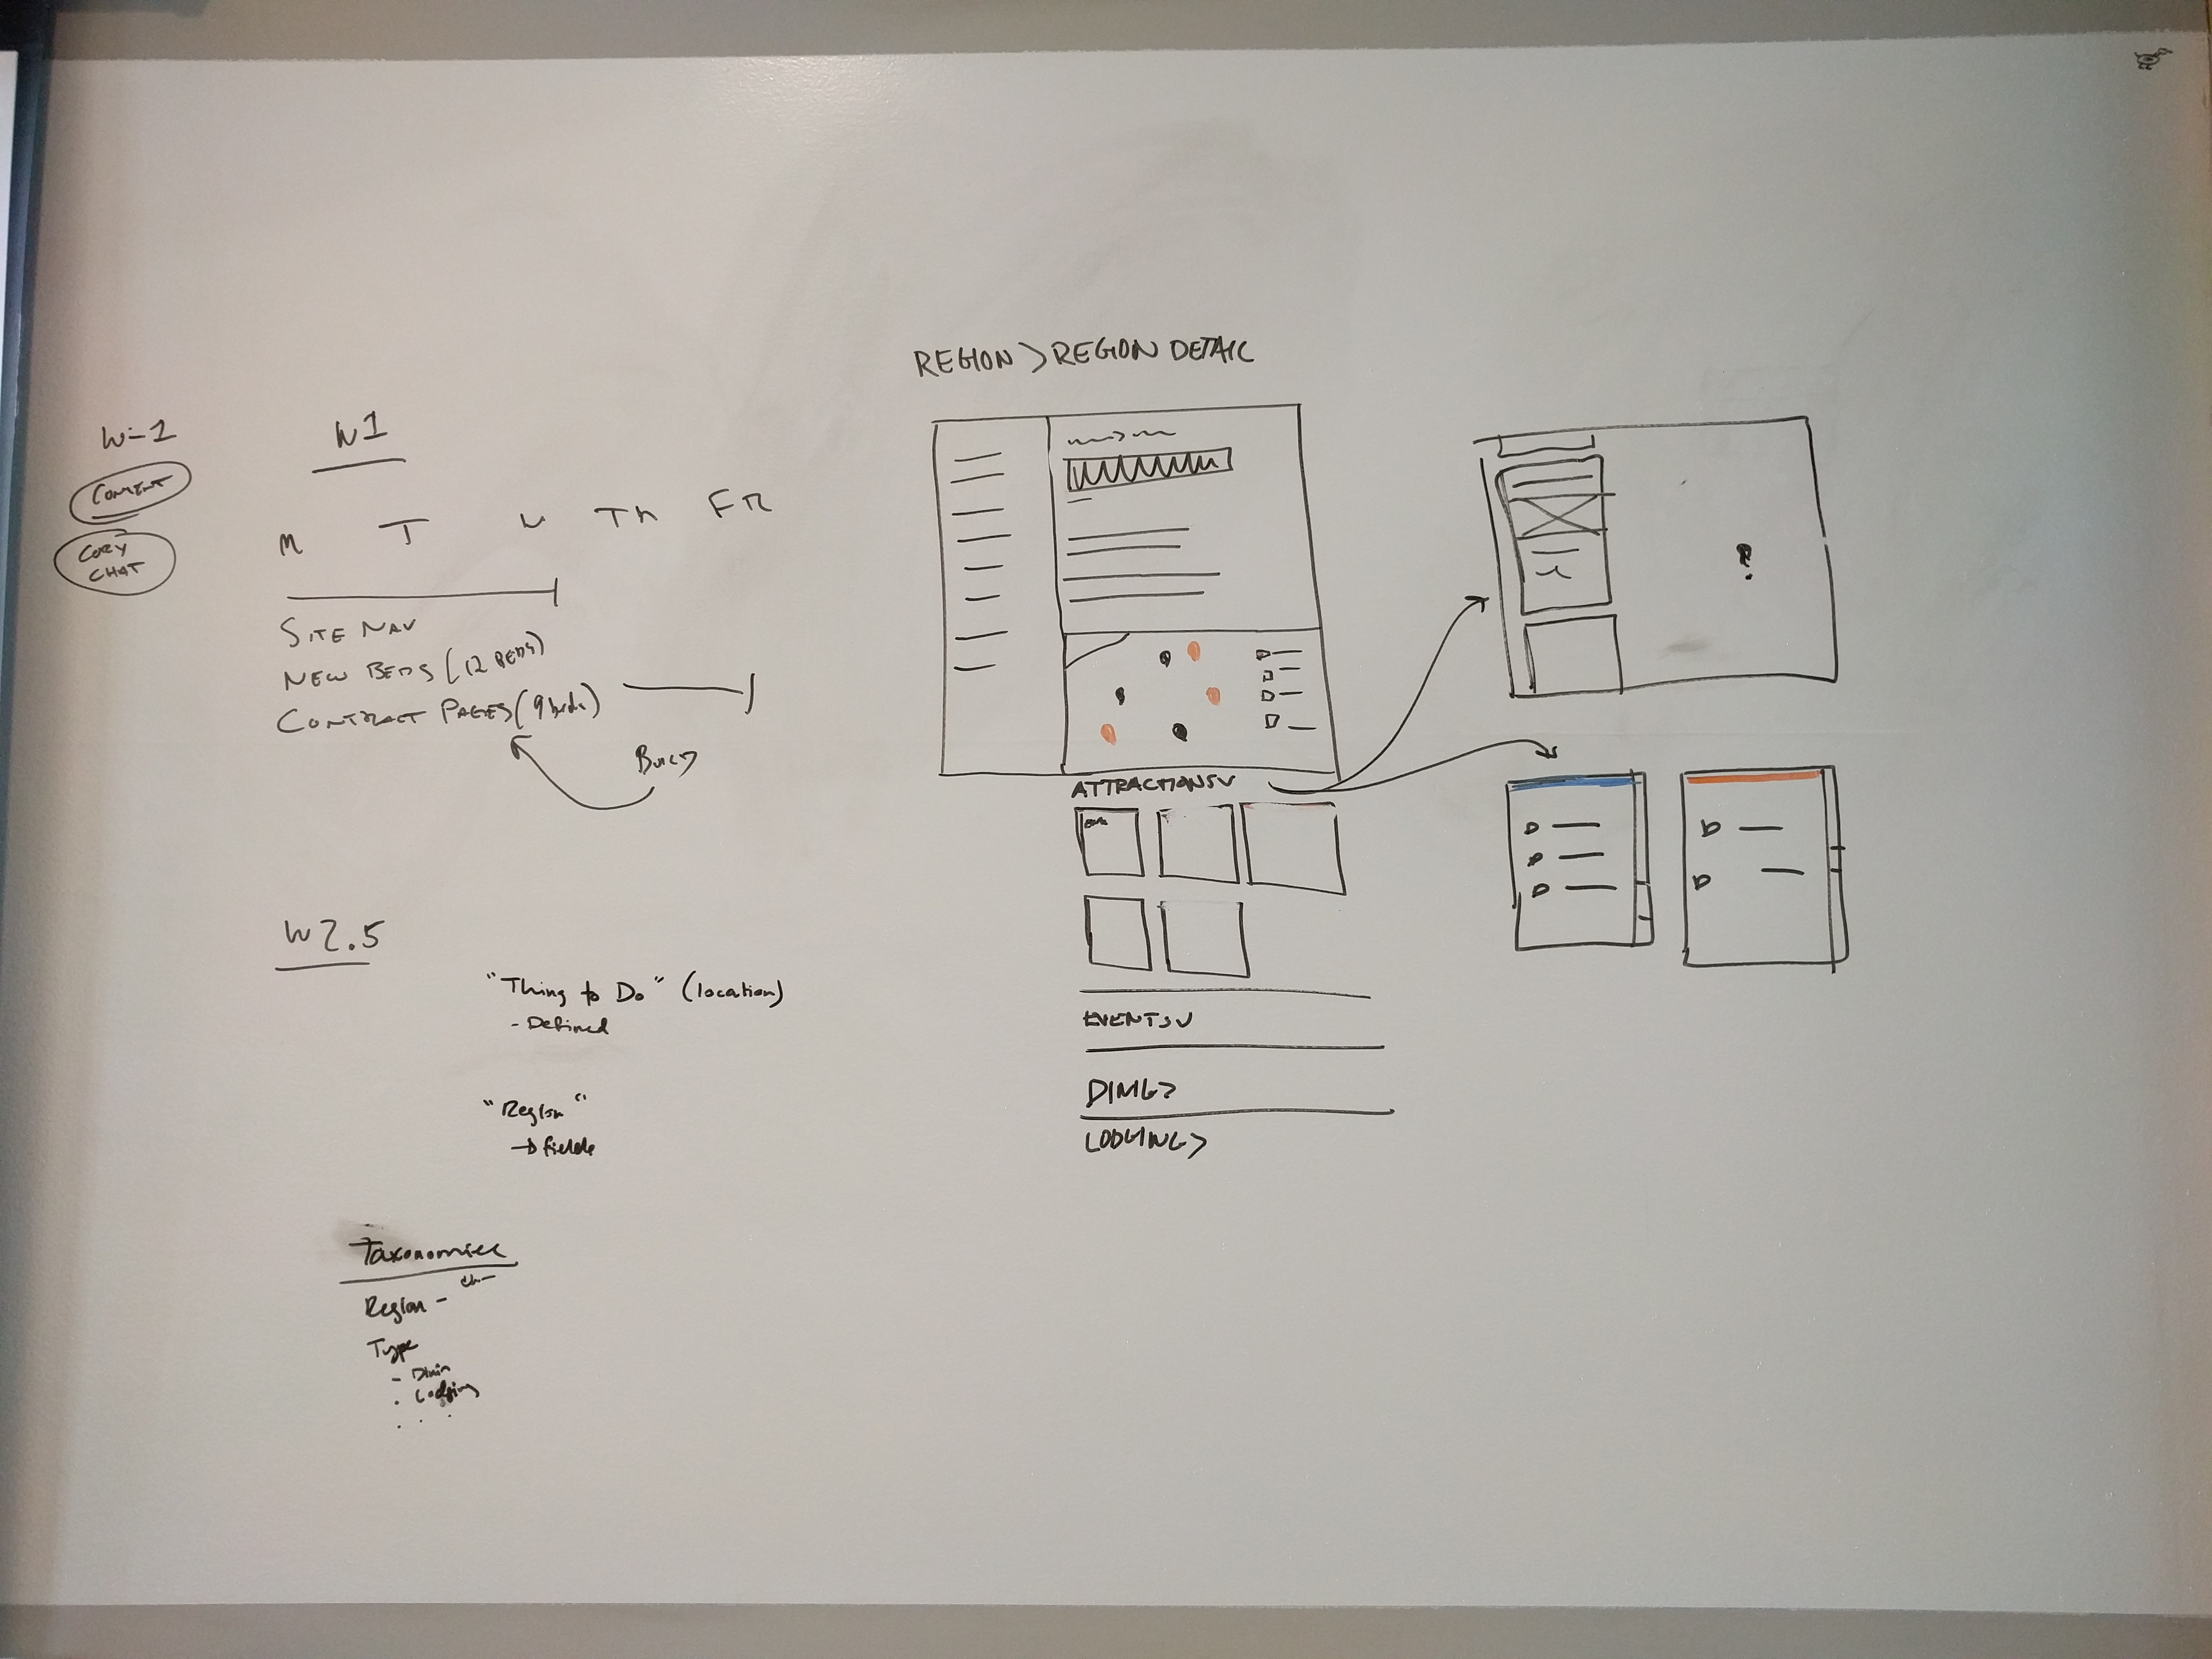 W-1
CONTENT
CORY
CHAT
W1
M T W Th FR
SITE NAV
NEW BEDS (12 BEDS)
CONTRACT PAGES (9 beds)
W2.5
"Thing to Do" (location)
- Defined
"Region"
→ fields
Taxonomies
Region -
Type
- Dinin
. Lodging
. . .
REGION > REGION DETAIL
ATTRACTIONS V
EVENTS V
DING >
LODGING >
?